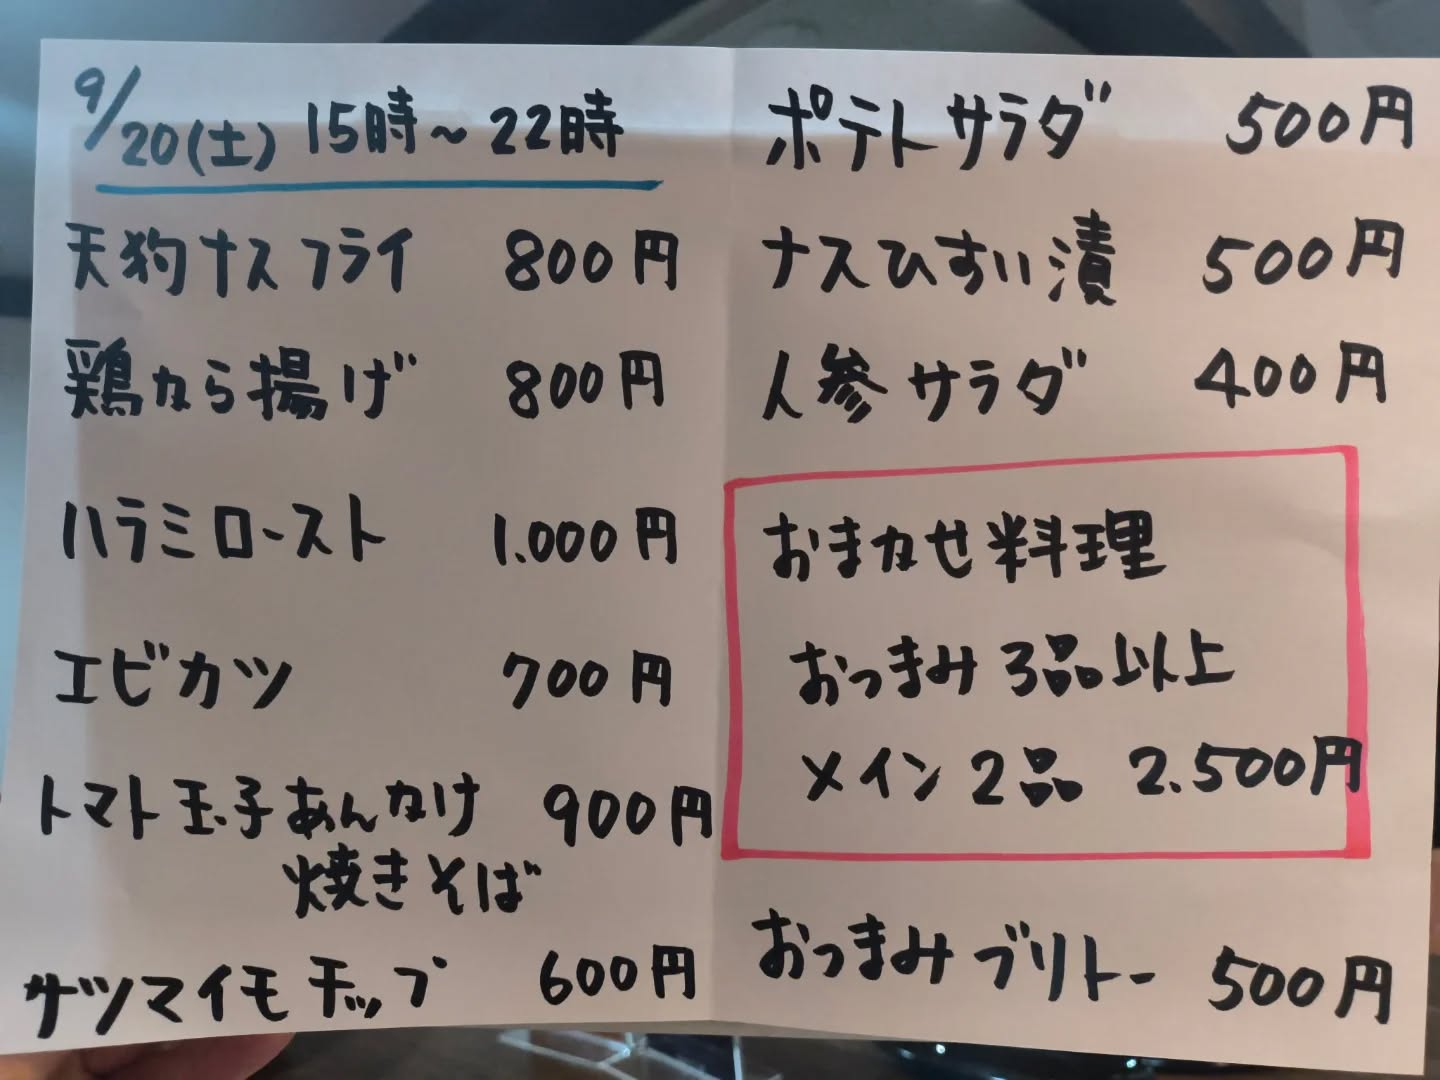 9/20(土) 15時~22時
天狗ナスフライ 800円
鶏から揚げ 800円
ハラミロースト 1.000円
エビカツ 700円
トマト玉子あんかけ 900円
焼きそば
サツマイモチップ 600円
ポテトサラダ 500円
ナスひすい漬 500円
人参サラダ 400円
おまかせ料理
おつまみ3品以上
メイン2品 2.500円
おつまみブリトー 500円